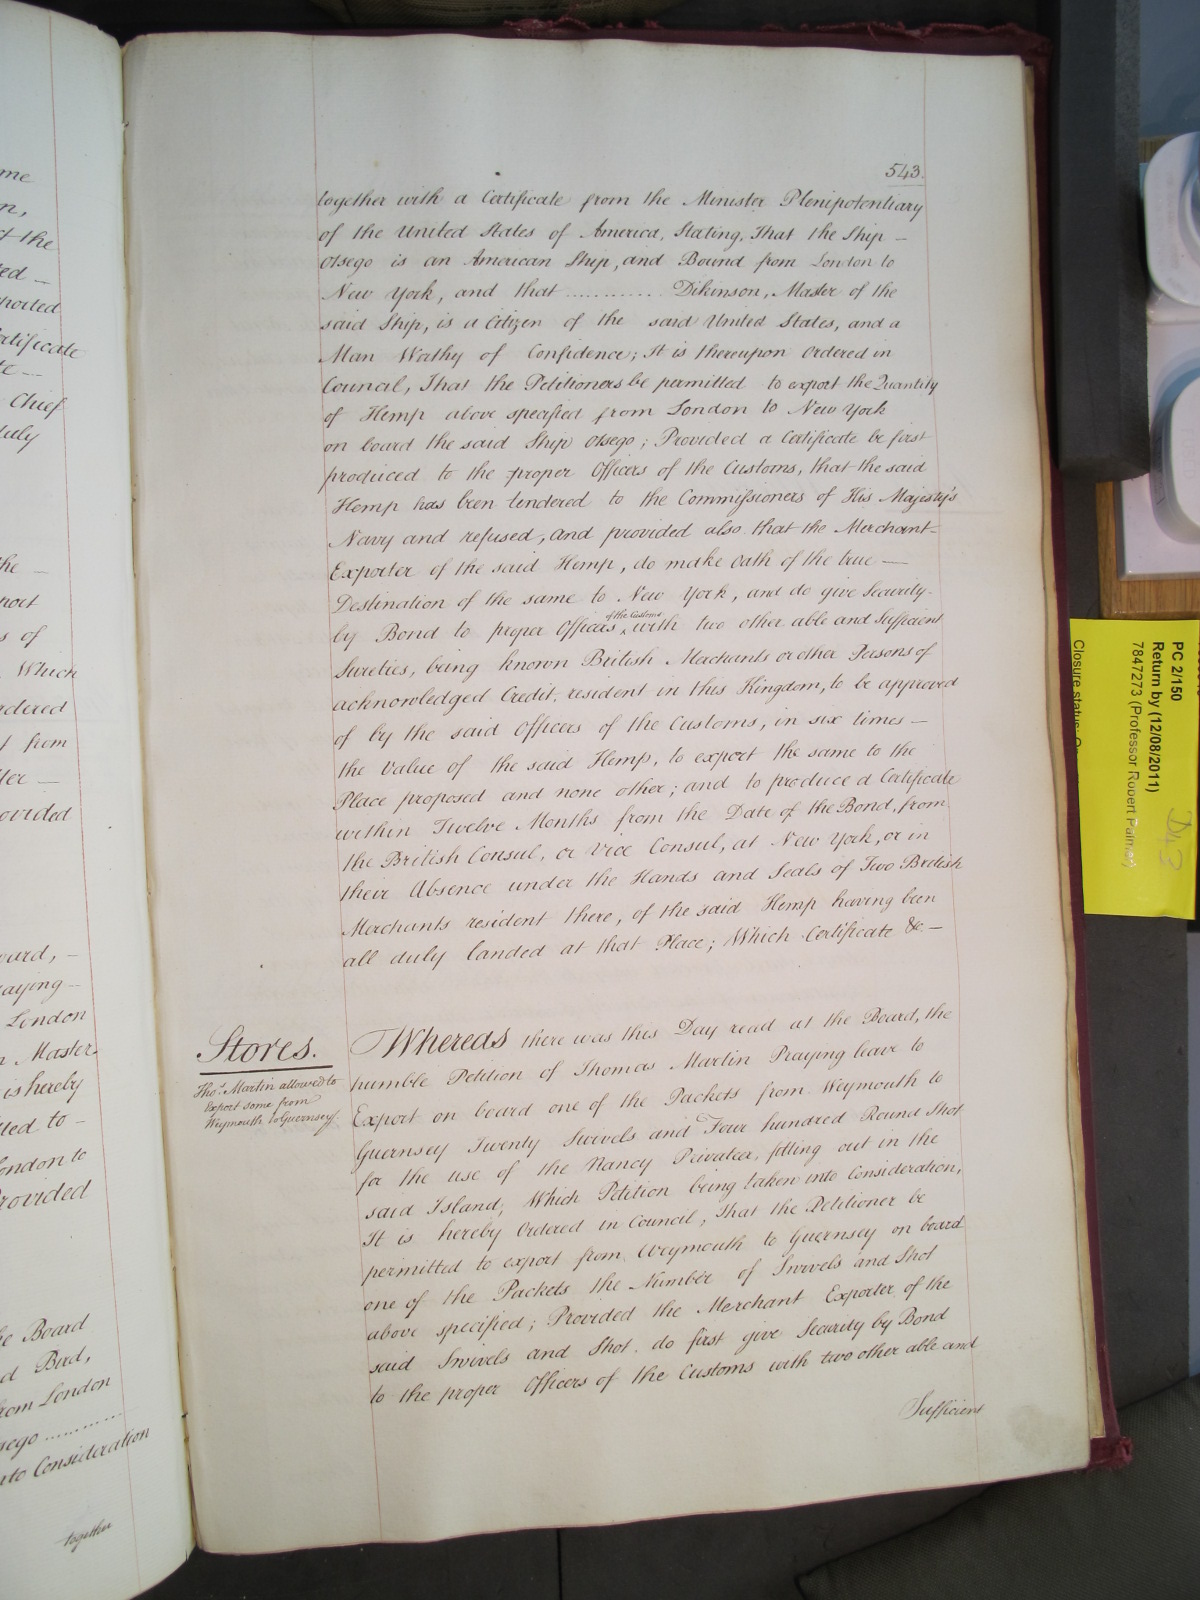 543.
together with a Certificate from the Minister Plenipotentiary
of the United States of America, Stating, That the Ship –
Otsego is an American Ship, and Bound from London to
New York, and that ............ Dikinson, Master of the
said Ship, is a Citizen of the said United States, and a
Man Worthy of Confidence; It is thereupon Ordered in
Council, That the Petitioners be permitted to export the Quantity
of Hemp above specified from London to New York
on board the said Ship Otsego; Provided a Certificate be first
produced to the proper Officers of the Customs, that the said
Hemp has been tendered to the Commissioners of His Majesty's
Navy and refused, and provided also that the Merchant–
Exporter of the said Hemp, do make Oath of the true —
Destination of the same to New York, and do give Security–
of the Customs
by Bond to proper Officers ‸ with two other able and Sufficient
Sureties, being known British Merchants or other Persons of
acknowledged Credit, resident in this Kingdom, to be approved
of by the said Officers of the Customs, in six times –
the Value of the said Hemp, to export the same to the
Place proposed and none other; and to produce a Certificate
within Twelve Months from the Date of the Bond, from
the British Consul, or Vice Consul, at New York, or in
their Absence under the Hands and Seals of Two British
Merchants resident there, of the said Hemp having been
all duly landed at that Place; Which Certificate &c –
Stores.
Thos. Martin allowed to
Export some from
Weymouth to Guernsey.
Whereas there was this Day read at the Board, the
humble Petition of Thomas Martin Praying leave to
Export on board one of the Packets from Weymouth to
Guernsey Twenty Swivels and Four hundred Round Shot
for the use of the Nancy Privateer, fitting out in the
said Island; Which Petition being taken into Consideration,
It is hereby Ordered in Council, That the Petitioner be
permitted to export from Weymouth to Guernsey on board
one of the Packets the Number of Swivels and Shot
above specified; Provided the Merchant Exporter of the
said Swivels and Shot do first give Security by Bond
to the proper Officers of the Customs with two other able and
Sufficient
me
n,
t the
ed –
ported
rtificate
Chief
uly
he –
port
s of
Which
rdered
from
ter –
ovided
oard, –
aying –
London
n Master
is hereby
tted to –
London to
Provided
e Board
d Bird,
rom London
sego ..........
nto Consideration
together
PC 2/150
Return by (12/08/2011)
7847273 (Professor Robert Palmer)
Closure status:
D43